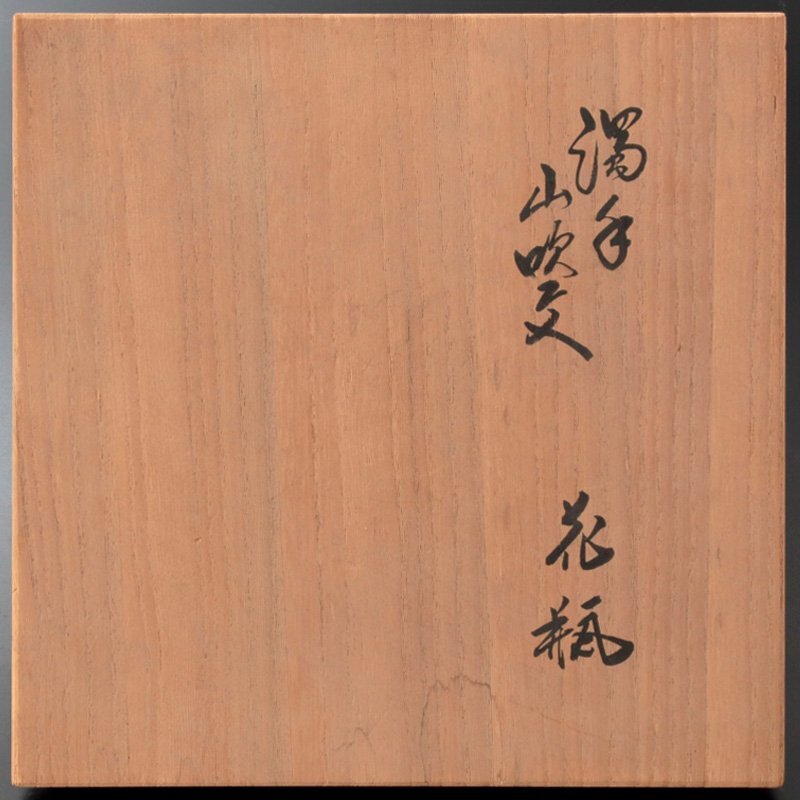 濁手
山吹文
花瓶